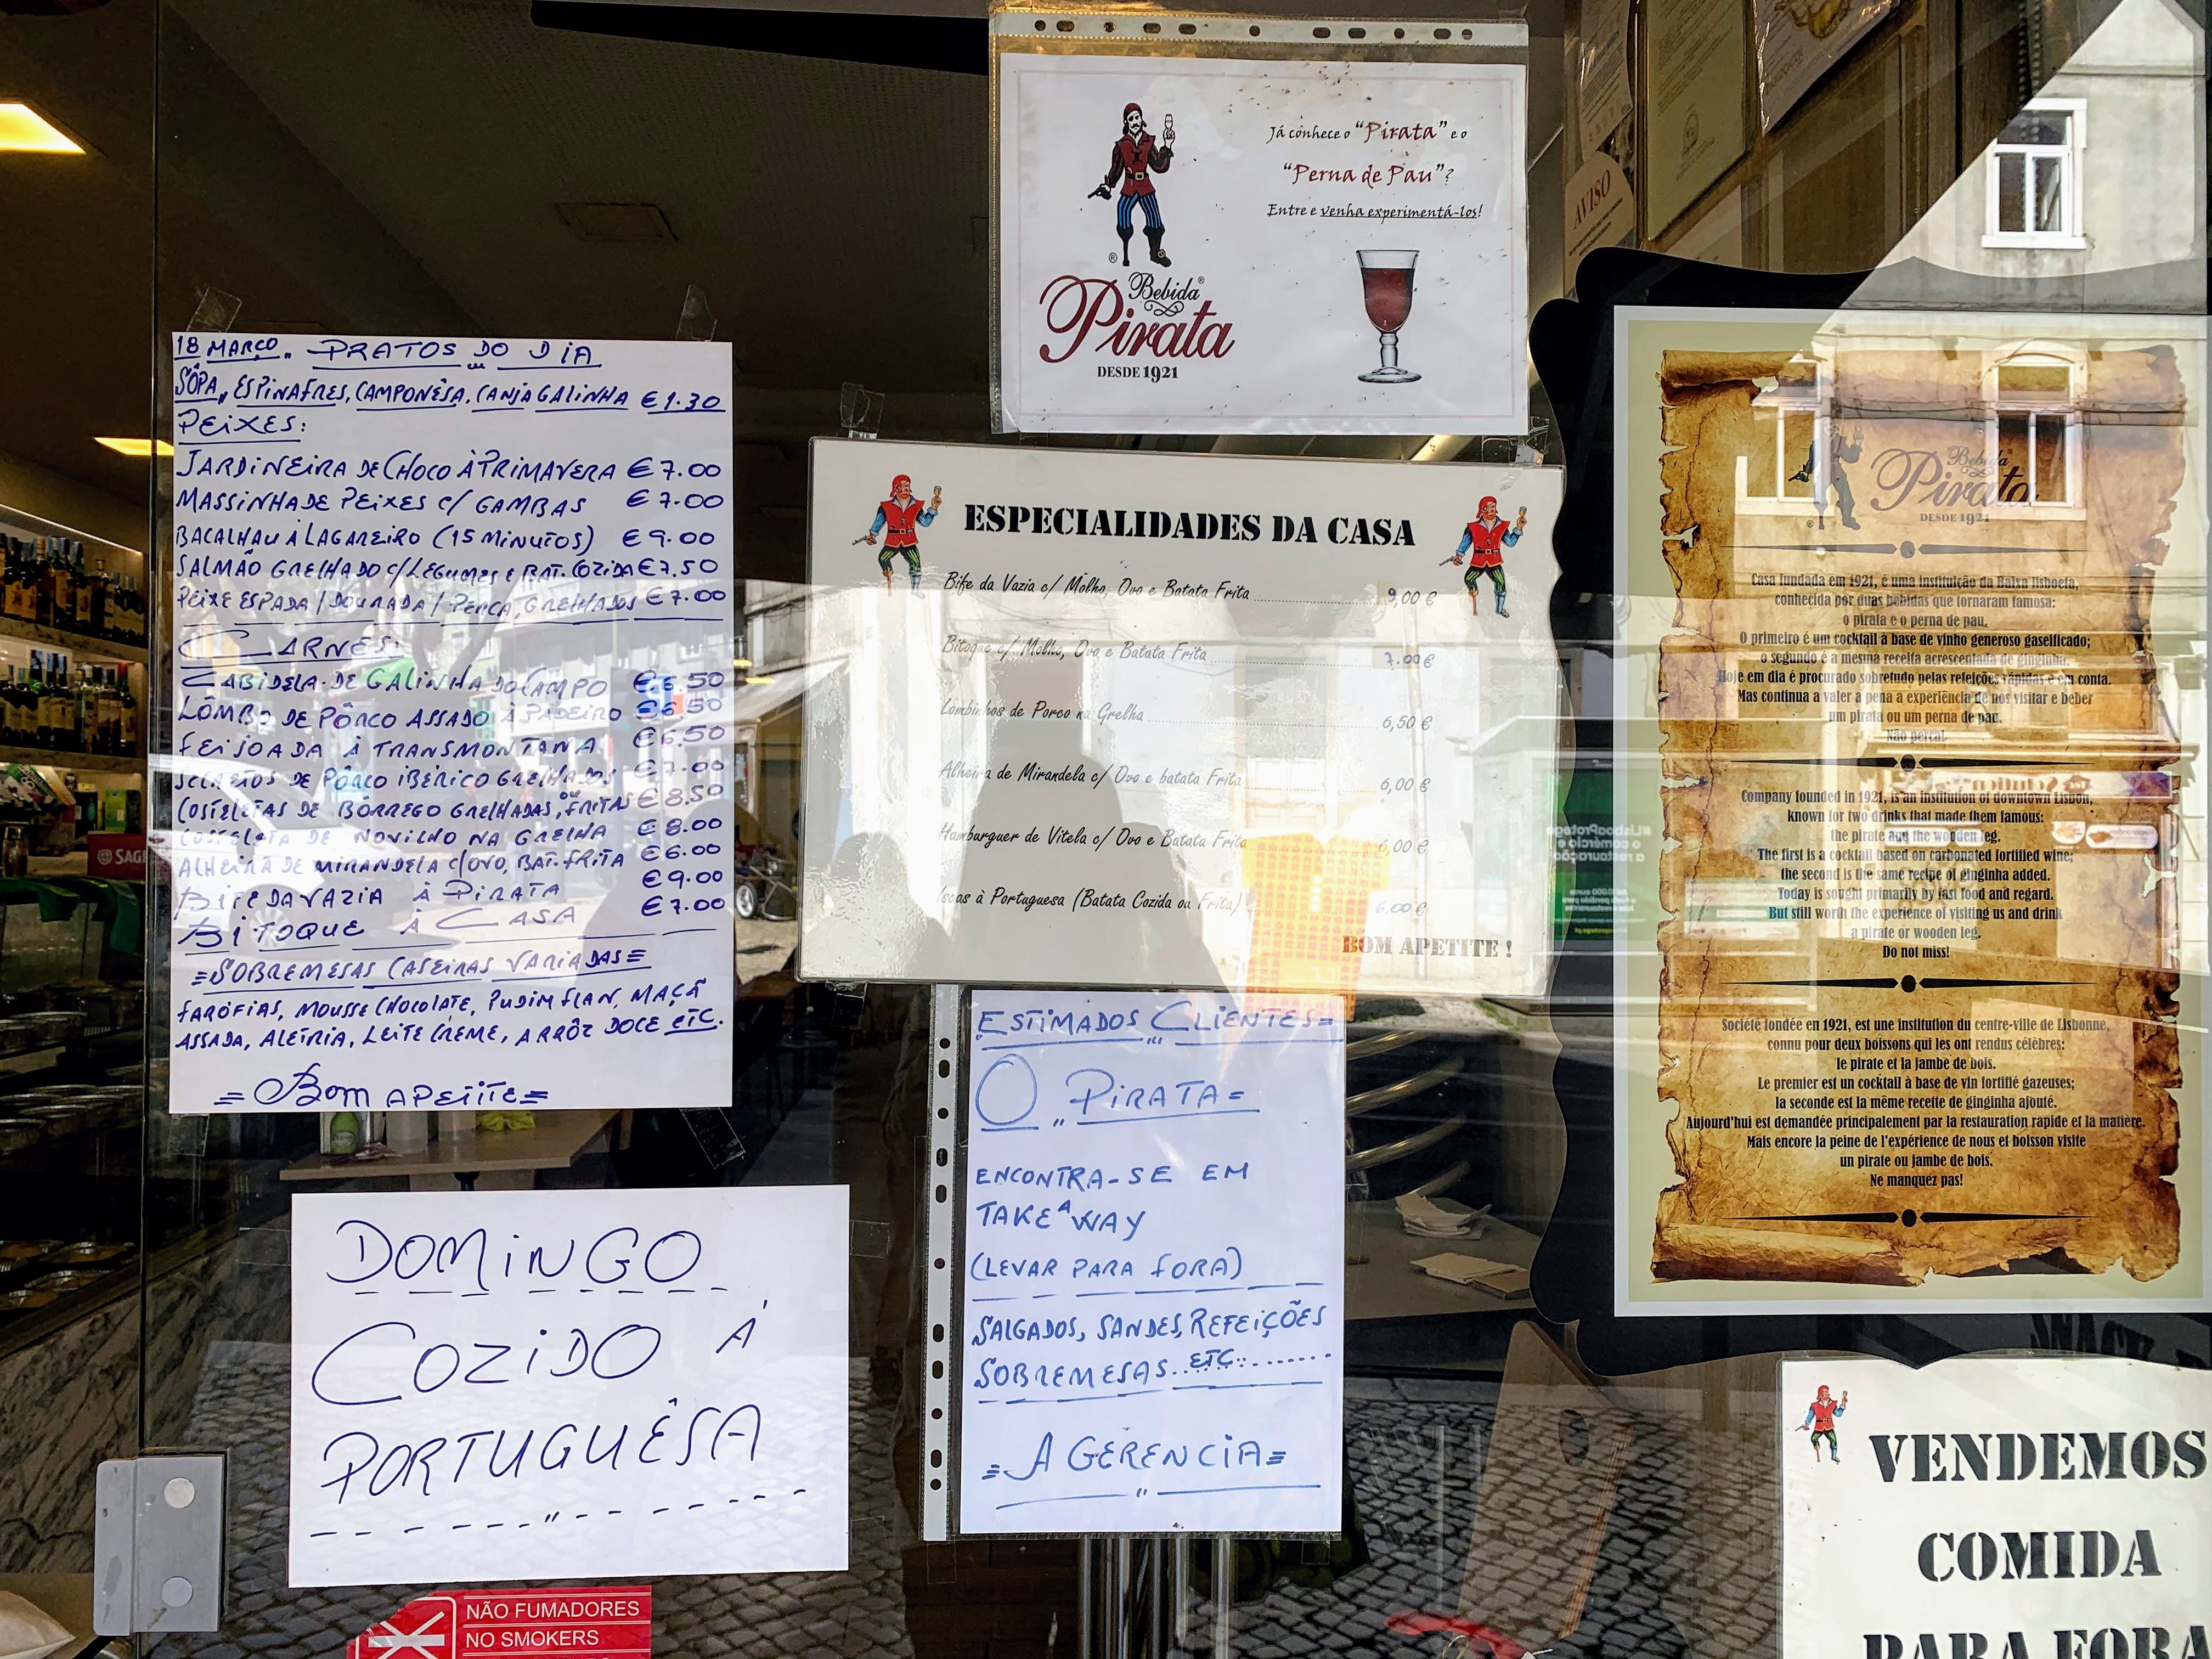 Já conhece o "Pirata" e o
"Perna de Pau"?
Entre e venha experimentá-los!
Bebida®
Pirata
DESDE 1921
AVISO
18 MARÇO „ PRATOS DO DIA
SÔPA„ ESPINAFRES, CAMPONÊSA, CANJA GALINHA €1.30
PEIXES:
JARDINEIRA DE CHOCO À PRIMAVERA €7.00
MASSINHA DE PEIXES C/ GAMBAS €7.00
BACALHAU À LAGAREIRO (15 MINUTOS) €9.00
SALMÃO GRELHADO C/LEGUMES E BAT. COZIDA €7.50
PEIXE ESPADA / DOURADA / PERCA, GRELHADOS €7.00
CARNES:
CABIDELA DE GALINHA DO CAMPO €6.50
LÔMBO DE PÔRCO ASSADO À PADEIRO €6.50
FEIJOADA À TRANSMONTANA €6.50
SECRETOS DE PÔRCO IBÉRICO GRELHADOS €7.00
COSTELETAS DE BÔRREGO GRELHADAS, OU FRITAS €8.50
COSTELETA DE NOVILHO NA GRELHA €8.00
ALHEIRA DE MIRANDELA C/OVO, BAT. FRITA €6.00
BIFE DA VAZIA À PIRATA €9.00
BITOQUE À CASA €7.00
=SOBREMESAS CASEIRAS VARIADAS=
FARÓFIAS, MOUSSE CHOCOLATE, PUDIM FLAN, MAÇÃ
ASSADA, ALETRIA, LEITE CREME, ARRÔZ DOCE ETC.
=BOM APETITE=
ESPECIALIDADES DA CASA
Bife da Vazia c/ Molho, Ovo e Batata Frita 9,00 €
Bitoque c/ Molho, Ovo e Batata Frita 7.00 €
Lombinhos de Porco na Grelha 6,50 €
Alheira de Mirandela c/ Ovo e batata Frita 6,00 €
Hamburguer de Vitela c/ Ovo e Batata Frita 6,00 €
Iscas à Portuguesa (Batata Cozida ou Frita) 6.00 €
BOM APETITE !
Bebida
Pirata
DESDE 1921
Casa fundada em 1921, é uma instituição da Baixa lisboeta,
conhecida por duas bebidas que tornaram famosa:
o pirata e o perna de pau.
O primeiro é um cocktail à base de vinho generoso gaseificado;
o segundo é a mesma receita acrescentada de ginginha.
Hoje em dia é procurado sobretudo pelas refeições rápidas e em conta.
Mas continua a valer a pena a experiência de nos visitar e beber
um pirata ou um perna de pau.
Não perca!
Company founded in 1921, is an institution of downtown Lisbon,
known for two drinks that made them famous:
the pirate and the wooden leg.
The first is a cocktail based on carbonated fortified wine;
the second is the same recipe of ginginha added.
Today is sought primarily by fast food and regard.
But still worth the experience of visiting us and drink
a pirate or wooden leg.
Do not miss!
Société fondée en 1921, est une institution du centre-ville de Lisbonne,
connu pour deux boissons qui les ont rendus célèbres:
le pirate et la jambe de bois.
Le premier est un cocktail à base de vin fortifié gazeuses;
la seconde est la même recette de ginginha ajouté.
Aujourd'hui est demandée principalement par la restauration rapide et la matière.
Mais encore la peine de l'expérience de nous et boisson visite
un pirate ou jambe de bois.
Ne manquez pas!
ESTIMADOS CLIENTES=
O „PIRATA=
ENCONTRA-SE EM
TAKE AWAY
(LEVAR PARA FORA)
SALGADOS, SANDES, REFEIÇÕES
SOBREMESAS..ETC........
=A GERENCIA=
DOMINGO
COZIDO À
PORTUGUÊSA
NÃO FUMADORES
NO SMOKERS
VENDEMOS
COMIDA
PARA FORA